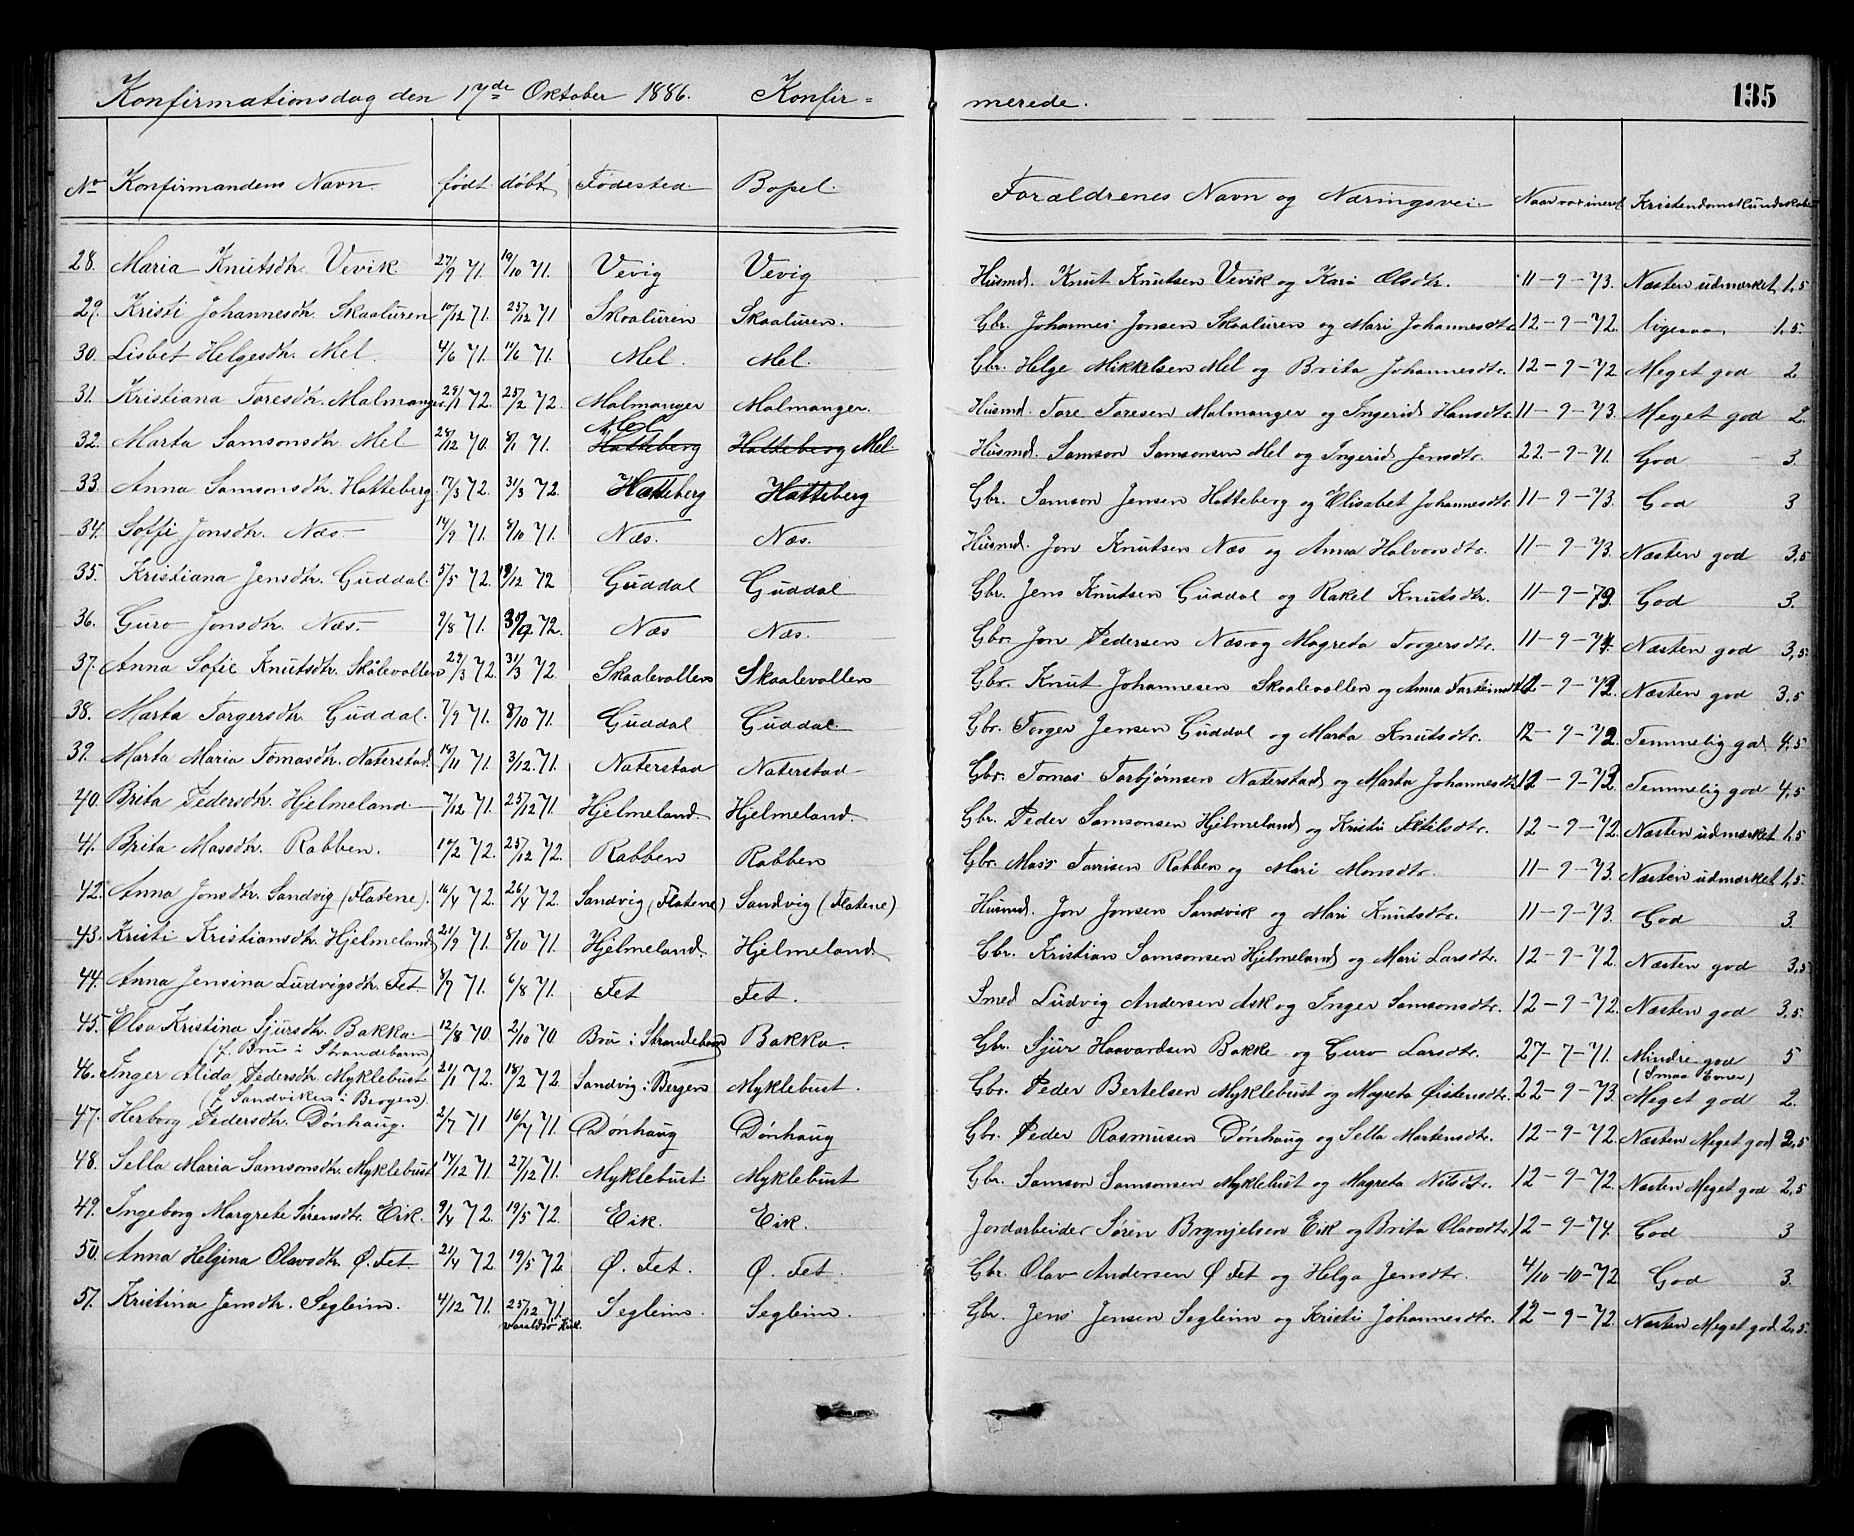 Konfirmationsdag den 17de Oktober 1886. Konfir= merede. 135
No Konfirmandens Navn født døbt Fødested. Bopel. Forældrenes Navn og Næringsvei Naar vaxineret Kristendomskundskaber
28. Maria Knutsdtr. Vevik 27/9 71. 19/10 71. Vevig Vevig Husmd. Knut Knutsen Vevik og Kari Olsdtr. 11-9-73. Næsten udmærket 1,5
29. Kristi Johannesdtr. Skaaluren 10/12 71. 25/12 71 Skaaluren Skaaluren. Gbr. Johannes Jonsen Skaaluren og Mari Johannesdtr 12-9-72. ligesaa 1,5.
30. Lisbet Helgesdtr. Mel. 4/6 71. 11/6 71. Mel. Mel. Gbr. Helge Mikkelsen Mel og Brita Johannesdtr. 12-9-72 Meget god 2
31. Kristiana Toresdtr. Malmanger. 29/1 72. 25/2 72. Malmanger Malmanger. Husmd. Tore Toresen Malmanger og Ingerid Hansdtr. 11-9-73. Meget god 2.
32. Marta Samsonsdtr. Mel 28/12 70. 8/1 71. Hatteberg Mel Hatteberg Mel Husmd. Samson Samsonsen Mel og Ingerid Jensdtr. 22-9-71. God 3.
33. Anna Samsonsdtr. Hatteberg. 17/3 72. 31/3 72. Hatteberg Hatteberg Gbr. Samson Jensen Hatteberg og Elisabet Johannesdtr. 11-9-73. God 3
34. Soffi Jonsdtr. Næs. 14/9 71. 8/10 71. Næs. Næs. Husmd. Jon Knutsen Næs og Anna Halvorsdtr. 11-9-73. Næsten god 3,5
35. Kristiana Jensdtr. Guddal. 5/5 72. 12/ 72 Guddal Guddal Gbr. Jens Knutsen Guddal og Rakel Knutsdtr. 11-9-73. God 3.
36. Guro Jonsdtr. Næs. 2/8 71. 72. Næs Næs. Gbr. Jon Pedersen Næs og Magreta Torgersdtr. 11-9-74. Næsten god 3,5.
37. Anna Sofie Knutsdtr. Skålevollen 29/3 72. 31/3 72. Skaalevollen Skaalevollen Gbr. Knut Johannesen Skaalevollen og Anna Torkeinsdtr 12-9-72. Næsten god 3,5
38. Marta Torgersdtr. Guddal. 7/9 71. 8/10 71. Guddal Guddal Gbr. Torger Jensen Guddal og Marta Knutsdtr. 12-9-72. Temmelig god 4,5
39. Marta Maria Tomasdtr. Naterstad. 18/11 71. 3/12 71. Naterstad Naterstad Gbr. Tomas Torbjørnsen Naterstad og Marta Johannesdtr 12-9-72. Temmelig god 4,5
40. Brita Pedersdtr. Hjelmeland. 7/12 71. 25/12 71. Hjelmeland. Hjelmeland. Gbr. Peder Samsonsen Hjelmeland og Kristi Ketilsdtr. 12-9-72. Næsten udmærket 1,5
41. Brita Massdtr. Rabben. 14/2 72. 25/12 72. Rabben Rabben Gbr. Mass Tarrisen Rabben og Mari Monsdtr. 11-9-73. Næsten udmærket 1,5.
42. Anna Jonsdtr. Sandvig (Flatene). 16/4 72. 26/4 72. Sandvig (Flatene) Sandvig (Flatene) Husmd. Jon Jonsen Sandvik og Mari Knutsdtr. 11-9-73. God 3.
43. Kristi Kristiansdtr. Hjelmeland 21/9 71. 8/10 71. Hjelmeland. Hjelmeland. Gbr. Kristian Samsonsen Hjelmeland og Mari Larsdtr. 12-9-72. Næsten god 3,5
44. Anna Jensina Ludvigsdtr. Fet 8/7 71. 6/8 71. Fet Fet. Smed Ludvig Andersen Ask og Inger Samsonsdtr. 12-9-72. Næsten god 3,5.
45. Elsa Kristina Sjursdtr. Bakka 12/8 70. 2/10 70. Bru i Strandebarm Bakka. Gbr. Sjur Haavardsen Bakke og Guro Larsdtr. 27-7-71. Mindre god 5
(f. Bru i Strandebarm) (Smaa Evner)
46. Inger Alida Pedersdtr. Myklebust 21/1 72. 18/2 72. Sandvig i Bergen Myklebust. Gbr. Peder Bertelsen Myklebust og Magreta Øistensdtr. 22-9-73. Meget god 2.
(f. Sandviken i Bergen)
47. Herborg Pedersdtr. Dønhaug. 2/7 71 16/7 71. Dønhaug Dønhaug Gbr. Peder Rasmusen Dønhaug og Sella Mortensdtr. 12-9-72. Næsten Meget god 2,5
48. Sella Maria Samsonsdtr. Myklebust 14/12 71. 27/12 71. Myklebust Myklebust Gbr. Samson Samsonsen Myklebust og Magreta Nilsdtr. 12-9-72. Næsten Meget god 2,5
49. Ingeborg Margrete Sørensdtr. Eik. 9/4 72. 19/5 72. Eik. Eik. Jordarbeider Søren Brynjelsen Eik og Brita Olavsdtr. 12-9-74. God 3
50. Anna Helgina Olavsdtr. Ø. Fet. 21/4 72. 19/5 72 Ø. Fet. Ø. Fet. Gbr. Olav Andersen Ø Fet og Helga Jensdtr. 4/10-10-72 God 3.
51. Kristina Jensdtr. Segleim. 4/12 71. 25/12 71. Segleim. Segleim. Gbr. Jens Jensen Segleim og Kristi Johannesdtr. 12-9-72. Næsten Meget god. 2,5.
Varaldsø Kirk.